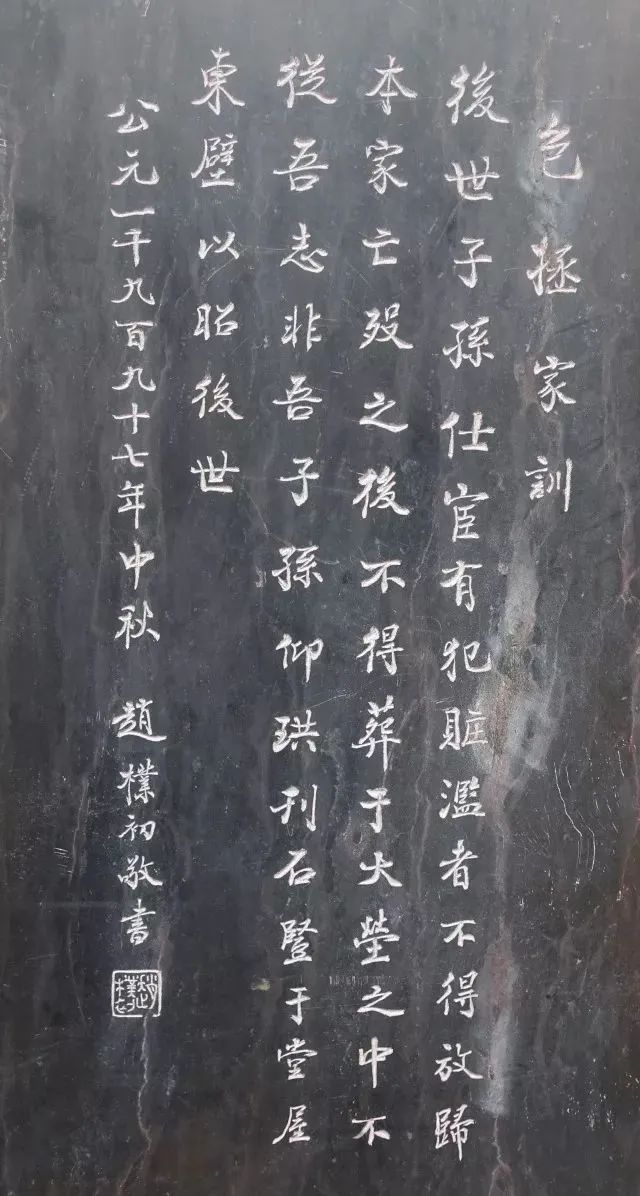 包拯家訓
後世子孫仕宦有犯賍濫者不得放歸
本家亡殁之後不得葬于大塋之中不
從吾志非吾子孫仰珙刊石豎于堂屋
東壁以昭後世
公元一千九百九十七年中秋 趙樸初敬書